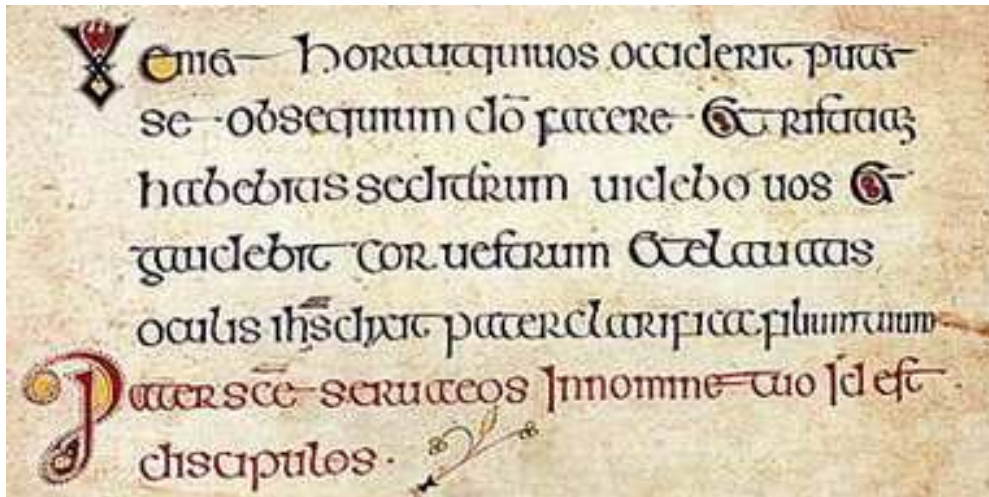 Uenia hora ut qui uos occiderit putat
se · obsequium dō facere · Et
habebitis sed iterum uidebo uos Et
gaudebit cor uestrum Et eleuatis
oculis ihs̄ dixit pater clarifica filium tuum
Pater sc̄e serua eos In nomine tuo Id est ·
discipulos ·